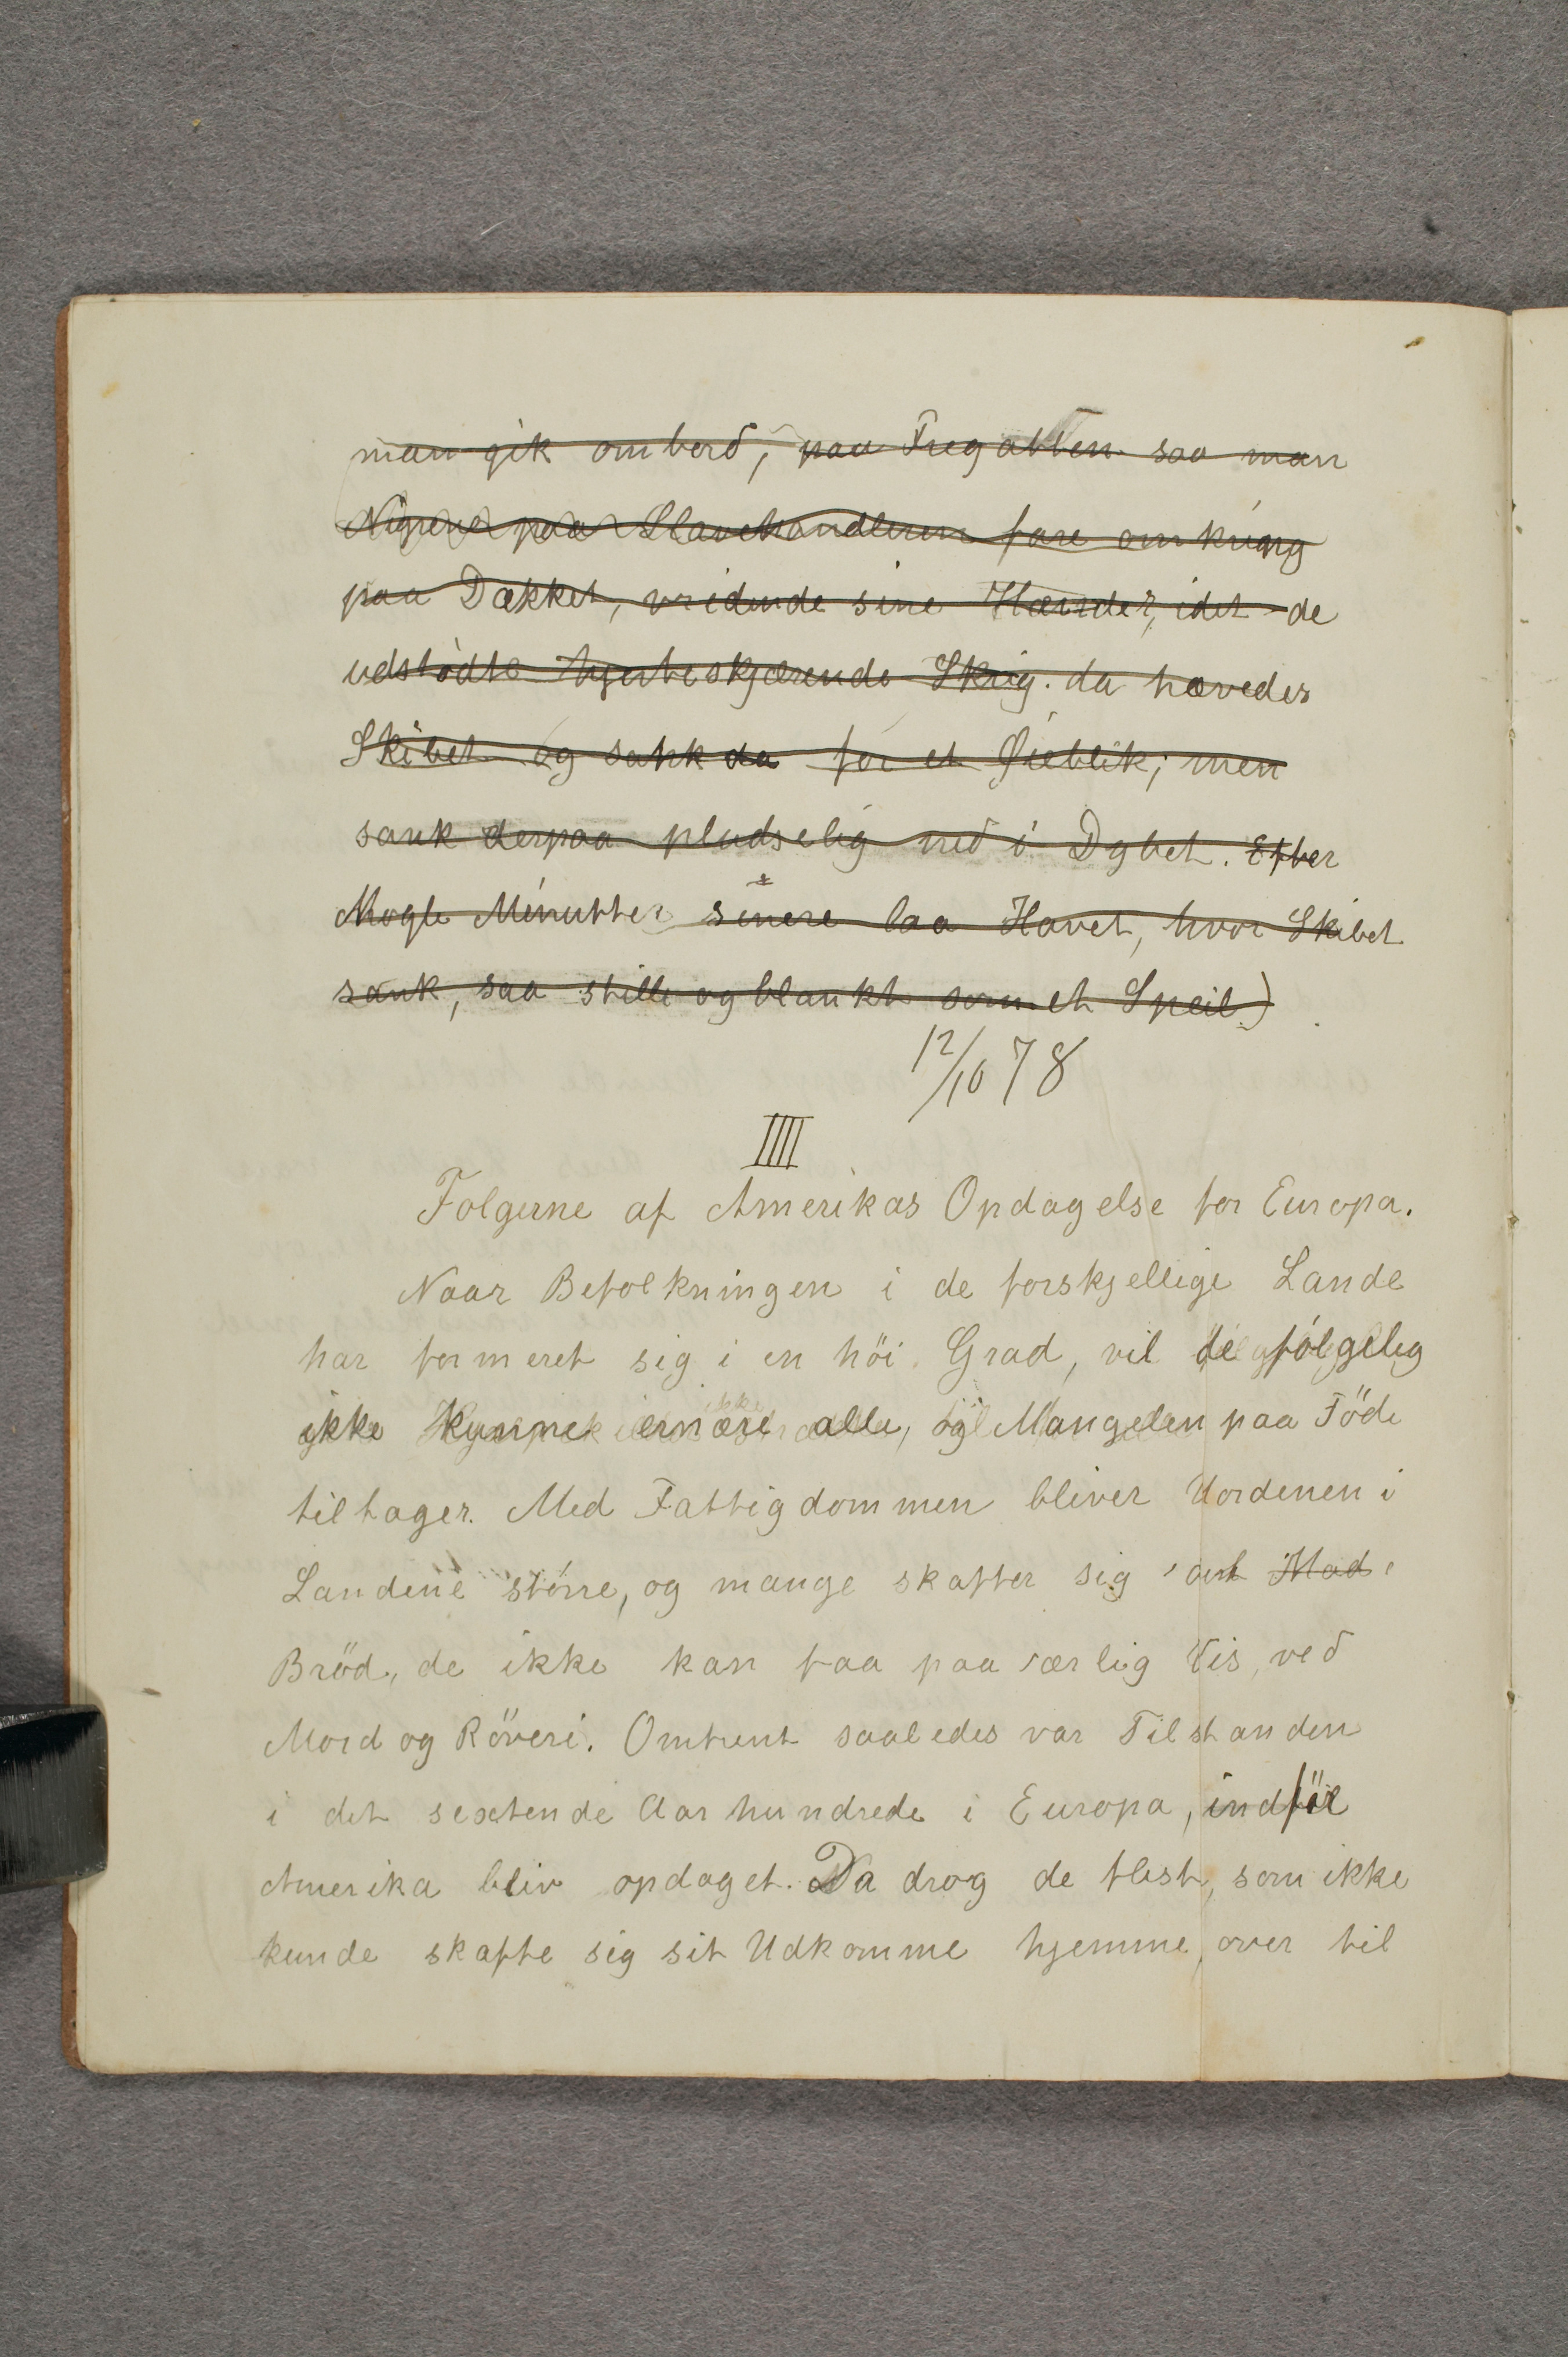 man gik ombord, paa Fregatten saa man
Nigrene paa Slavehandleren fare omkring
paa Dækket, vridende sine Hænder, idet de
udstödte hjerteskjærende Skrig. da hævedes
Skibet og sank da for et Øieblik; men
sank derpaa pludselig ned i Dybet. Efter
Nogle Minutter sinere laa Havet, hvor Skibet
sank, saa stille og blankt som et Speil)
12/10 78
IIII
Folgerne af Amerikas Opdagelse for Europa.
Naar Befolkningen i de forskjellige Lande
har formeret sig i en höi Grad, vil de fölgelig
ikke Kunne ernære alle, og Mangelen paa Föde
tiltager. Med Fattigdommen bliver Uordenen i
Landene större, og mange skaffer sig Mad
Bröd, de ikke kan faa paa ærlig Vis, ved
Mord og Röveri. Omtrent saaledes var Tilstanden
i det sextende Aarhundrede i Europa, indför
Amerika blev opdaget. Da drog de flest, som ikke
kunde skaffe sig sit Udkomme hjemme, over til